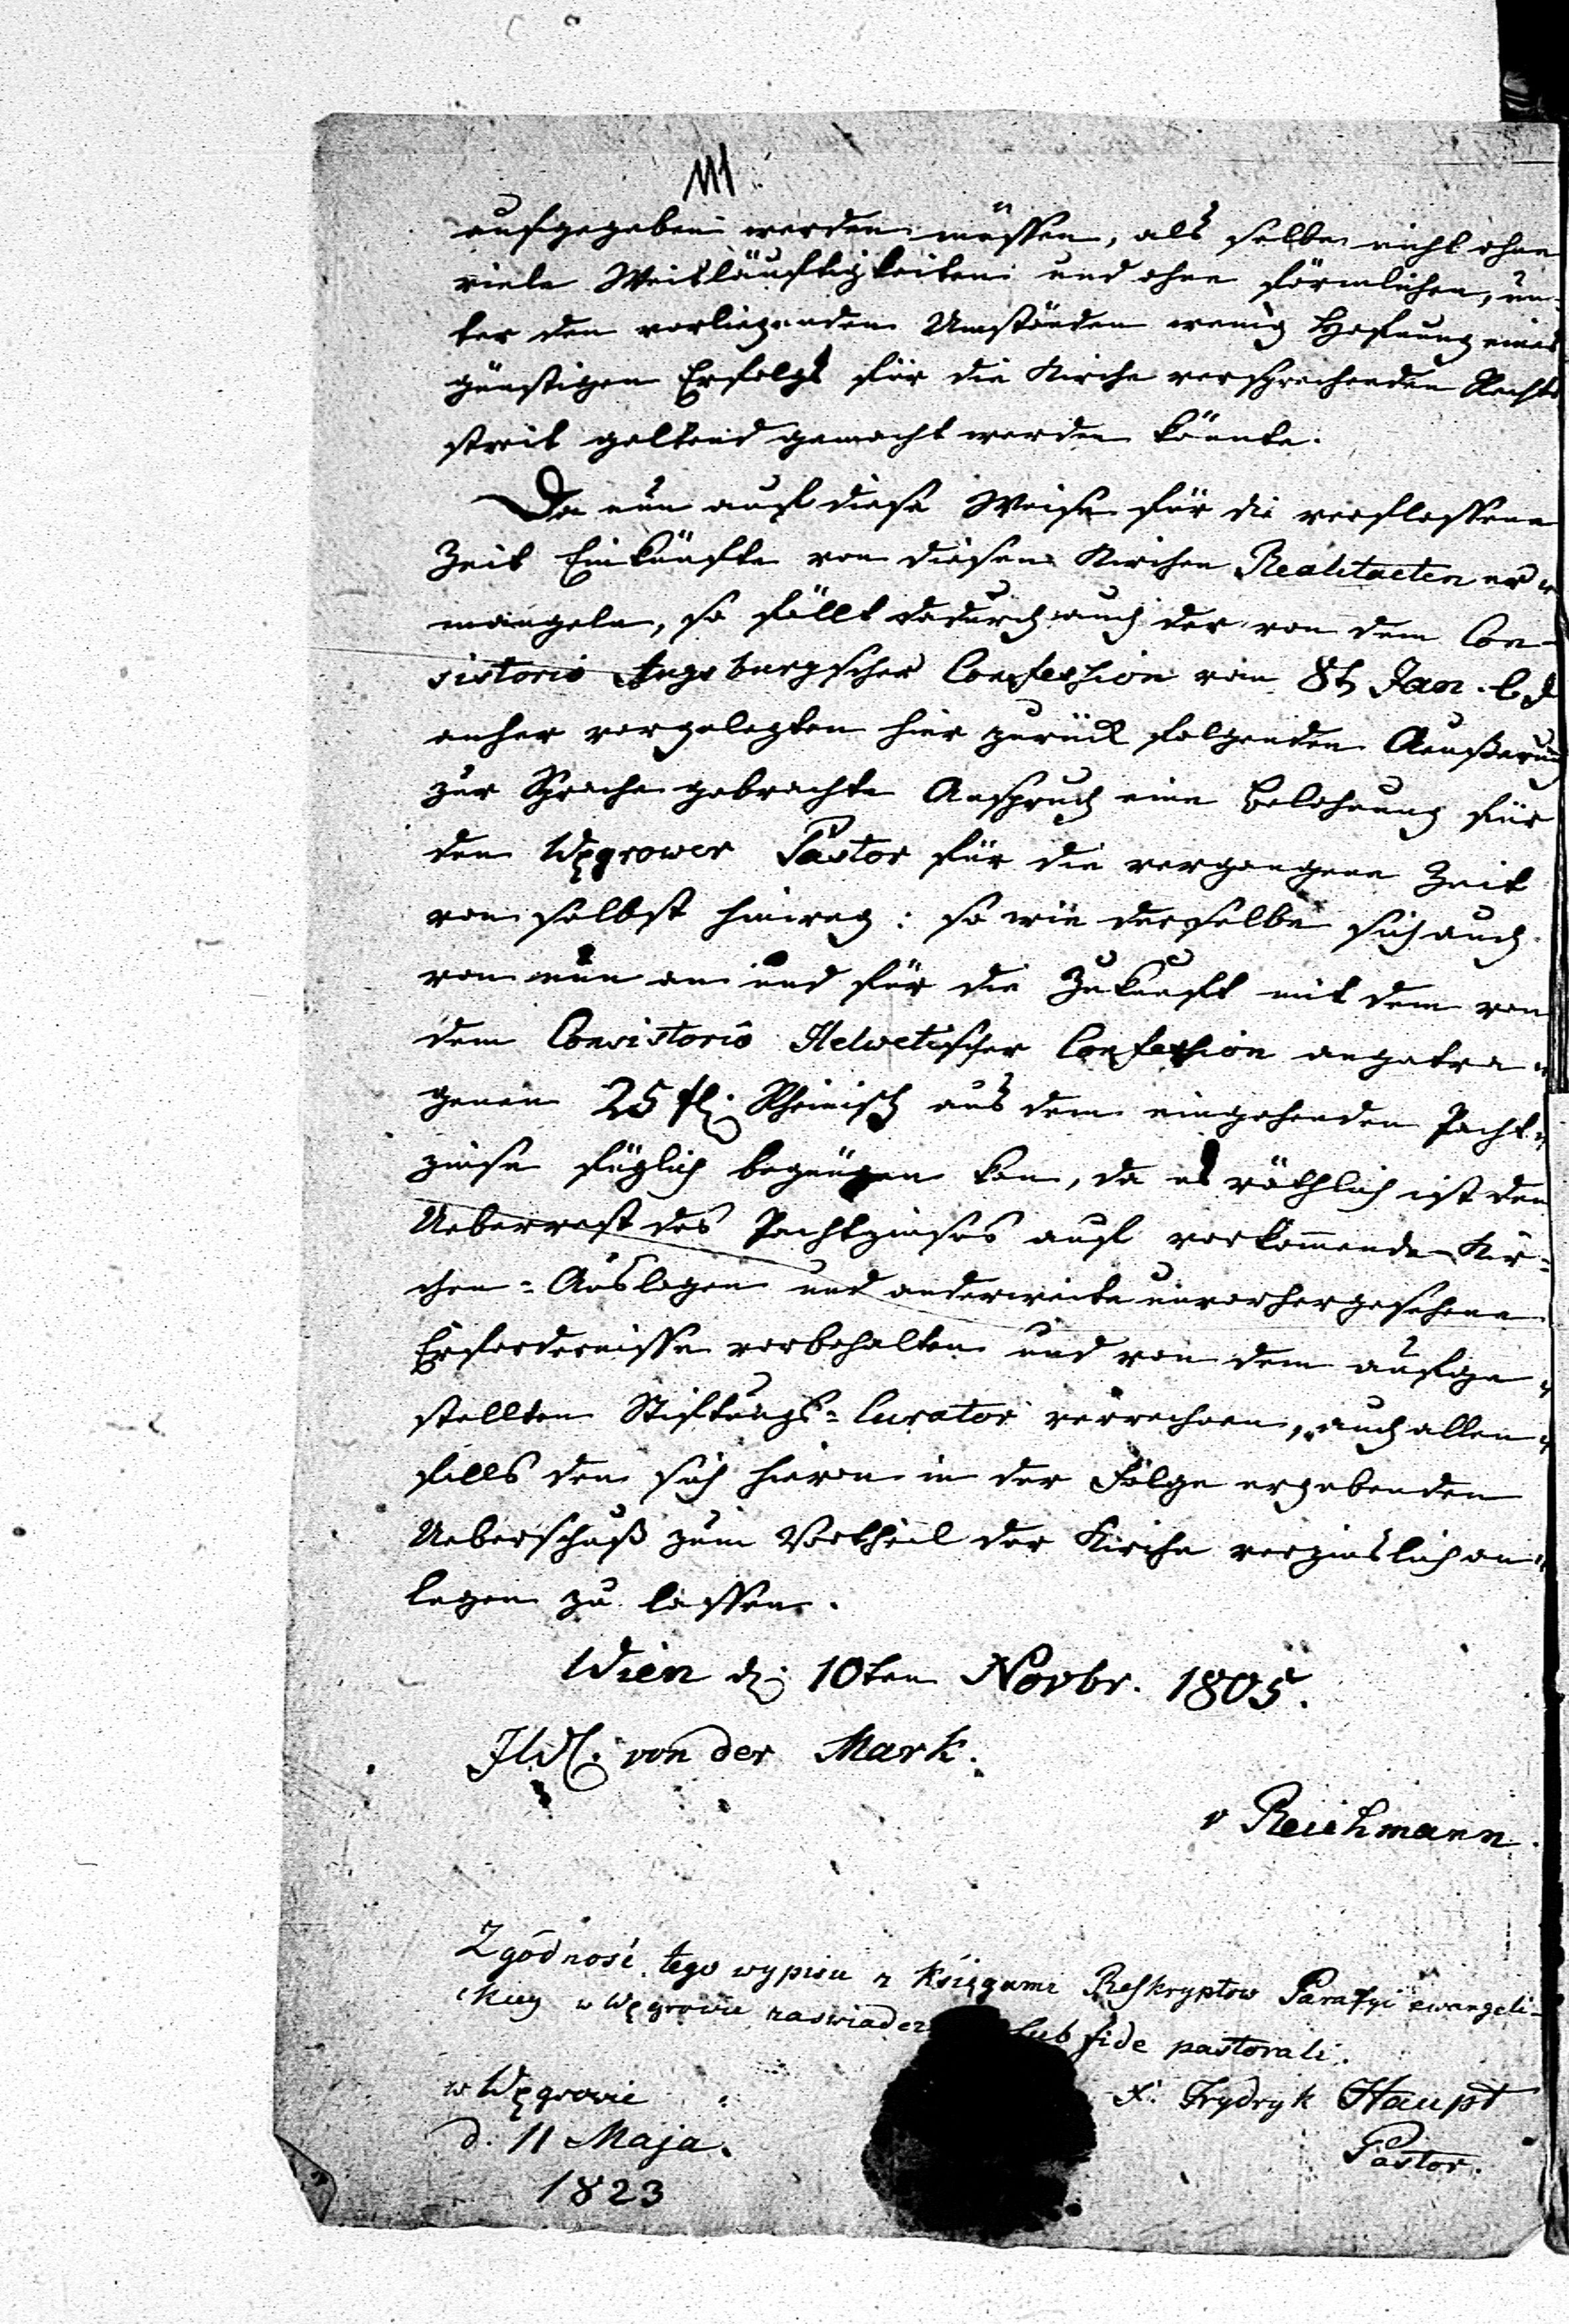 aufgegeben werden müssen, als selbe nicht ohne
viele Weitläuftigkeiten und ohne förmlichen, un-
ter den vorliegenden Umständen wenig Hofnung eines
günstigen Erfolgs für die Kirche versprechenden Rechts
streit geltend gemacht werden könnte.
Da nun auf diese Weise für die verflossene
Zeit Einkünfte von diesen Kirchen Realitaeten er=
mangeln, so fällt dadurch auch der von dem Con-
sistorio Augsburgscher Confession vom 8t Jan.
anher vorgelegten hier zurück folgenden Aeußerung
zur Sprache gebrachte Anspruch einer Belohnung für
den Węgrower Pastor für die vergangene Zeit
von selbst hinweg: so wie derselbe sich auch
von nun an und für die Zukunft mit dem von
dem Consistorio Helvetischer Confession angetra=
genen 25 fl: Rheinisch aus dem eingehenden Pacht=
zinse füglich begnügen kan, da es räthlich ist den
Ueberrest des Pachtzinses auf vorkom̅ende Kir=
chen=Auslagen und anderweite unvorhergesehene
Erfordernisse vorbehalten und von dem aufge=
stellten Stiftungs=Curator verrechnen, auch allen=
falls den sich hievon in der Folge ergebenden
Ueberschuß zum Vortheil der Kirche verzinslich an=
legen zu lassen.
Wien d: 10ten Novbr. 1805.
von der Mark.
v Reichmann.
Zgódność tego wypisu z Księgami Reskryptow Parafyi ewangeli-
ckiey w Węgrowie zaswiadcz sub fide pastorali.
w Węgrowie
d. 11 Maja.
1823
Frydryk Haupt
Pastor.